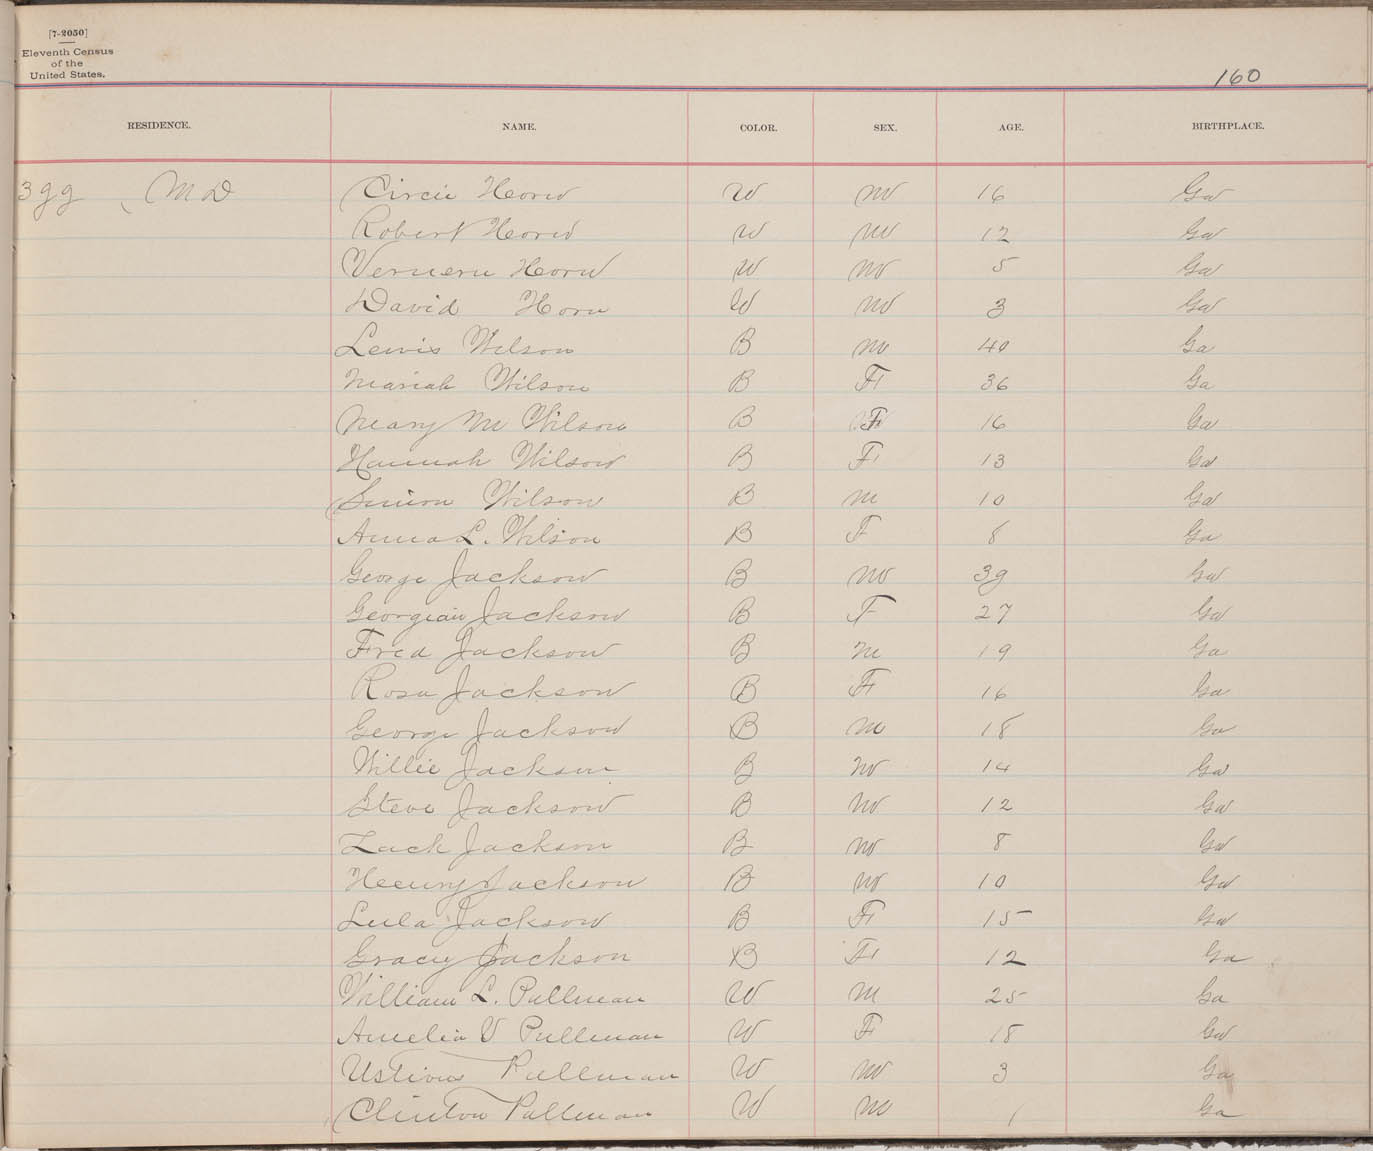 [7-2050]
Eleventh Census
of the
United States.
160
RESIDENCE. NAME. COLOR. SEX. AGE. BIRTHPLACE.
M D Horn W M 16 Ga
Robert Horn W M 12 Ga
Horn W M 5 Ga
David Horn W M 3 Ga
Lewis Wilson B M 40 Ga
Mariah Wilson B F 36 Ga
Mary M Wilson B F 16 Ga
Hannah Wilson B F 13 Ga
Simon Wilson B M 10 Ga
Anna L. Wilson B F 8 Ga
George Jackson B M 39 Ga
Georgian Jackson B F 27 Ga
Fred Jackson B M 19 Ga
Rosa Jackson B F 16 Ga
George Jackson B M 18 Ga
Willie Jackson B M 14 Ga
Steve Jackson B M 12 Ga
Zack Jackson B M 8 Ga
Henry Jackson B M 10 Ga
Lula Jackson B F 15 Ga
Gracy Jackson B F 12 Ga
William L. Pullman W M 25 Ga
Amelia V Pullman W F 18 Ga
Pullman W M 3 Ga
Clinton Pullman W M 1 Ga